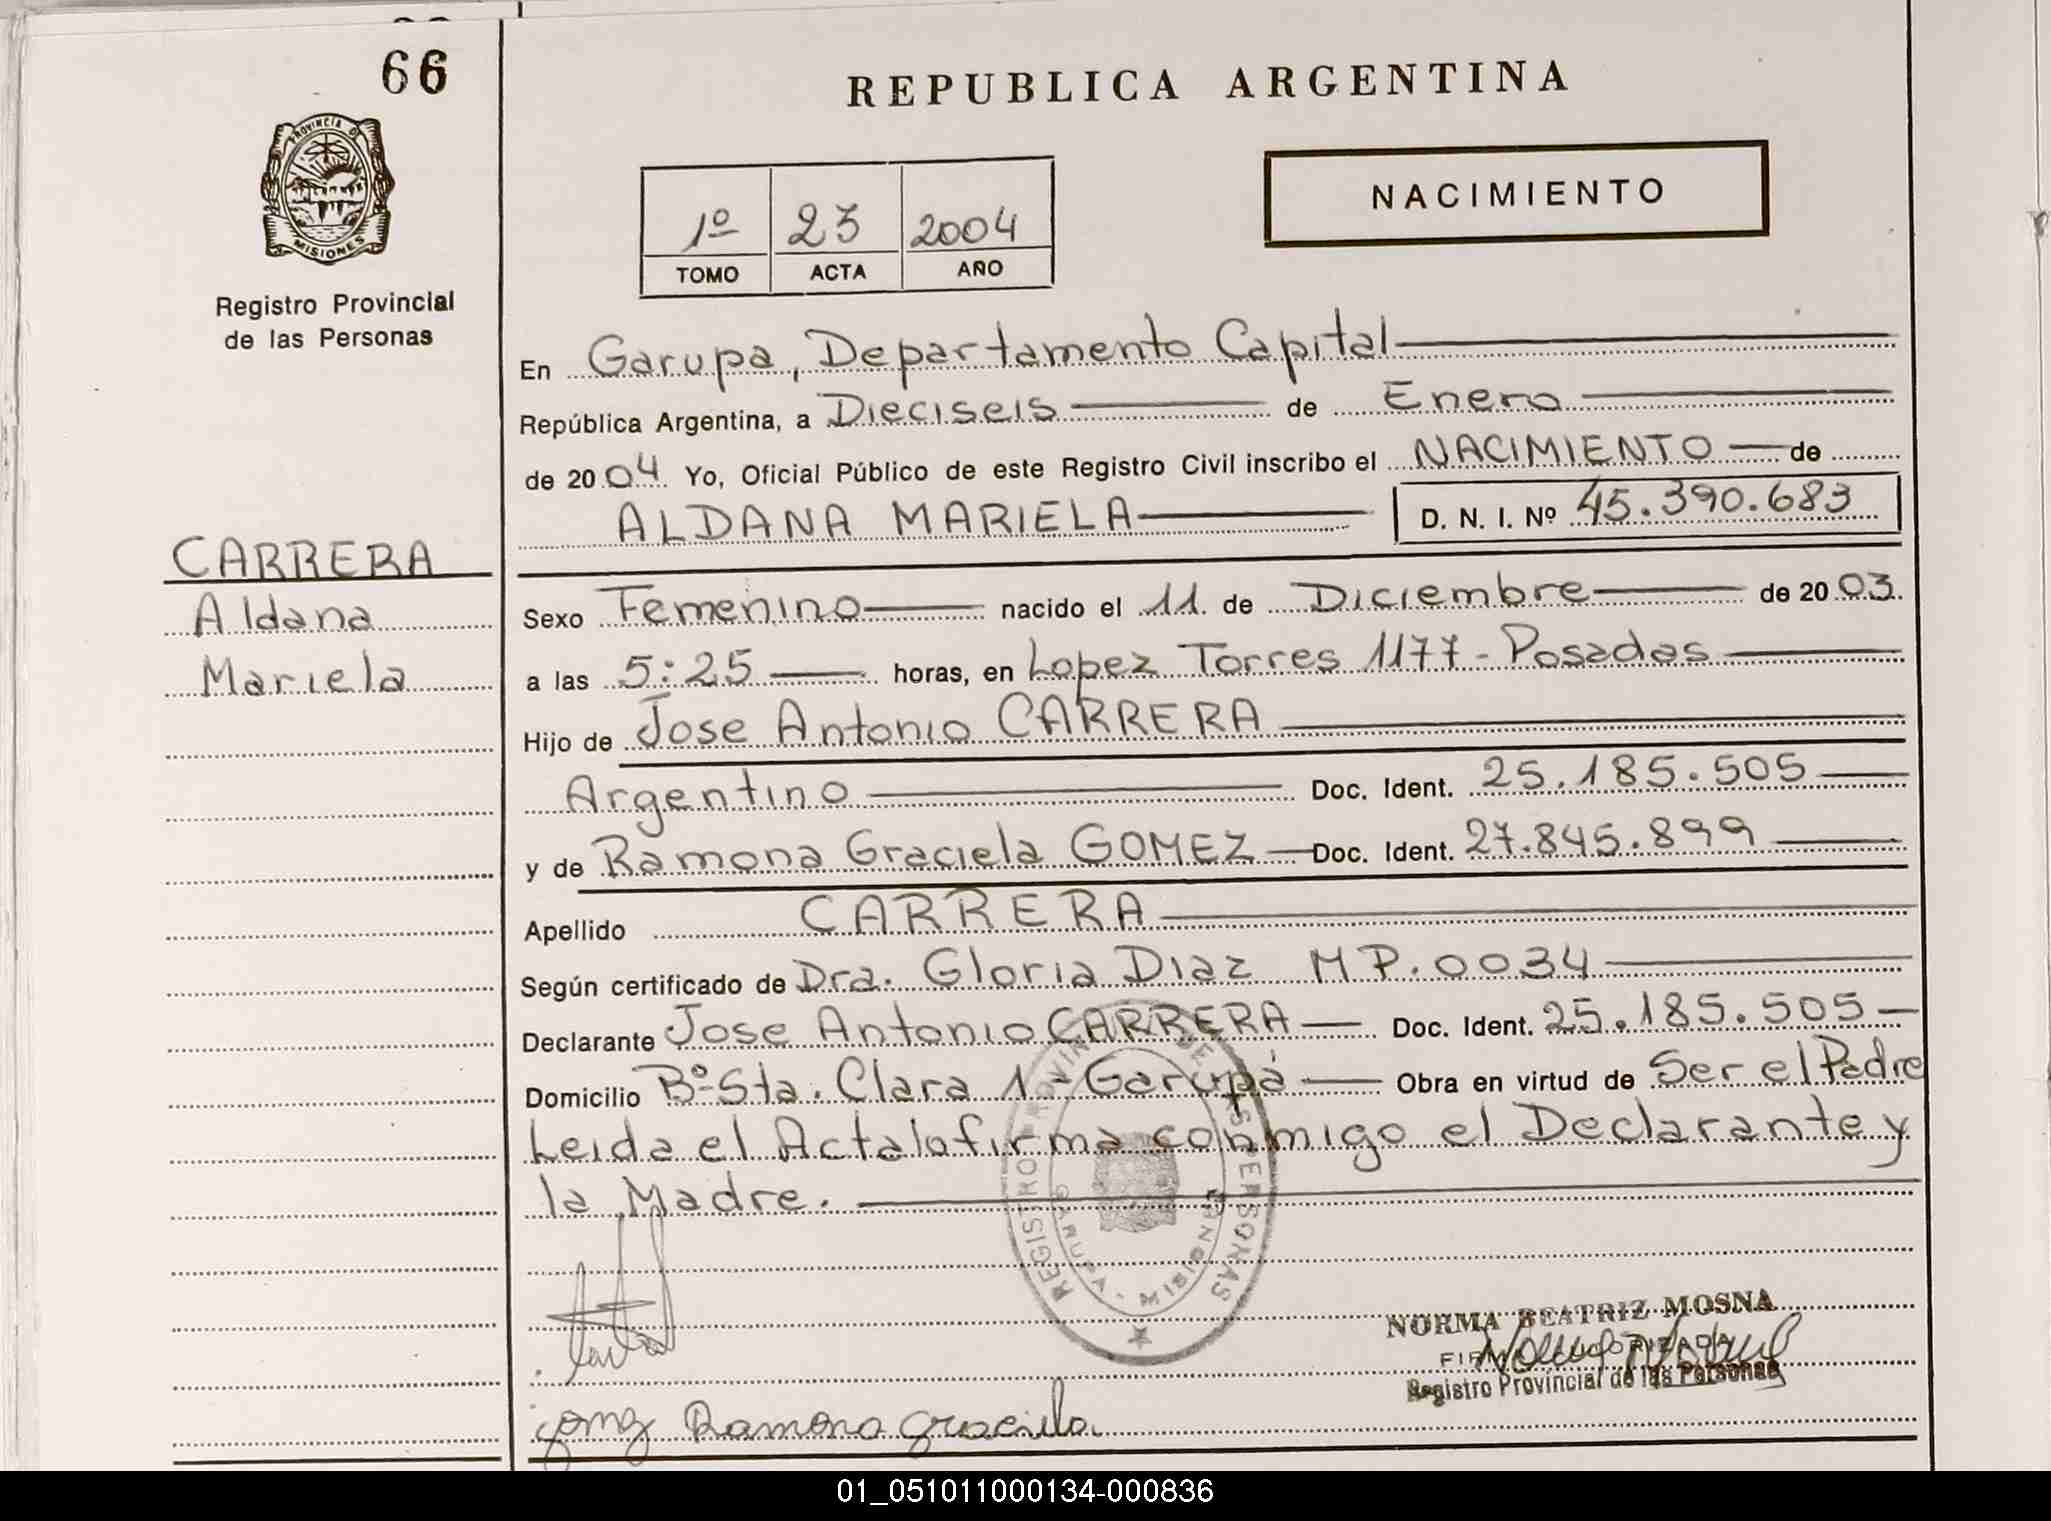 66
PROVINCIA DE
MISIONES
Registro Provincial
de las Personas
CARRERA
Aldana
Mariela
REPUBLICA ARGENTINA
1º 23 2004
TOMO ACTA AÑO
NACIMIENTO
En Garupa, Departamento Capital
República Argentina, a Dieciseis de Enero
de 2004 Yo, Oficial Público de este Registro Civil inscribo el NACIMIENTO de
ALDANA MARIELA D. N. I. Nº 45.390.683
Sexo Femenino nacido el 11 de Diciembre de 2003.
a las 5:25 horas, en Lopez Torres 1177 - Posadas
Hijo de Jose Antonio CARRERA
Argentino Doc. Ident. 25.185.505
y de Ramona Graciela GOMEZ Doc. Ident. 27.845.899
Apellido CARRERA
Según certificado de Dra. Gloria Diaz MP. 0034
Declarante Jose Antonio CARRERA Doc. Ident. 25.185.505
Domicilio Bº Sta. Clara 1 - Garupá Obra en virtud de Ser el Padre
Leida el Acta la firma conmigo el Declarante y
la Madre.
REGISTRO PROVINCIAL DE LAS PERSONAS
GARUPA - MISIONES
NORMA BEATRIZ MOSNA
FIRMA AUTORIZADA
Registro Provincial de las Personas
Ramona Graciela
01_051011000134-000836